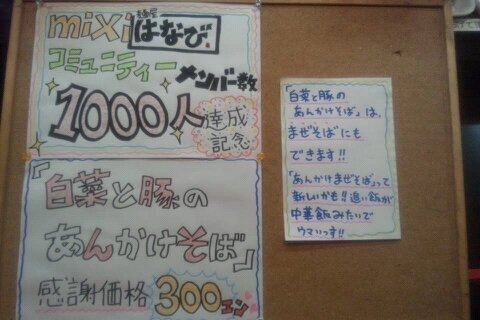 mixi 麺屋はなび
コミュニティーメンバー数
1000人達成
記念
「白菜と豚の
あんかけそば」
感謝価格 300エン
「白菜と豚の
あんかけそば」は、
まぜそばにも
できます!!
「あんかけまぜそば」って
新しいかも!!追い飯が
中華飯みたいで
ウマいっす!!